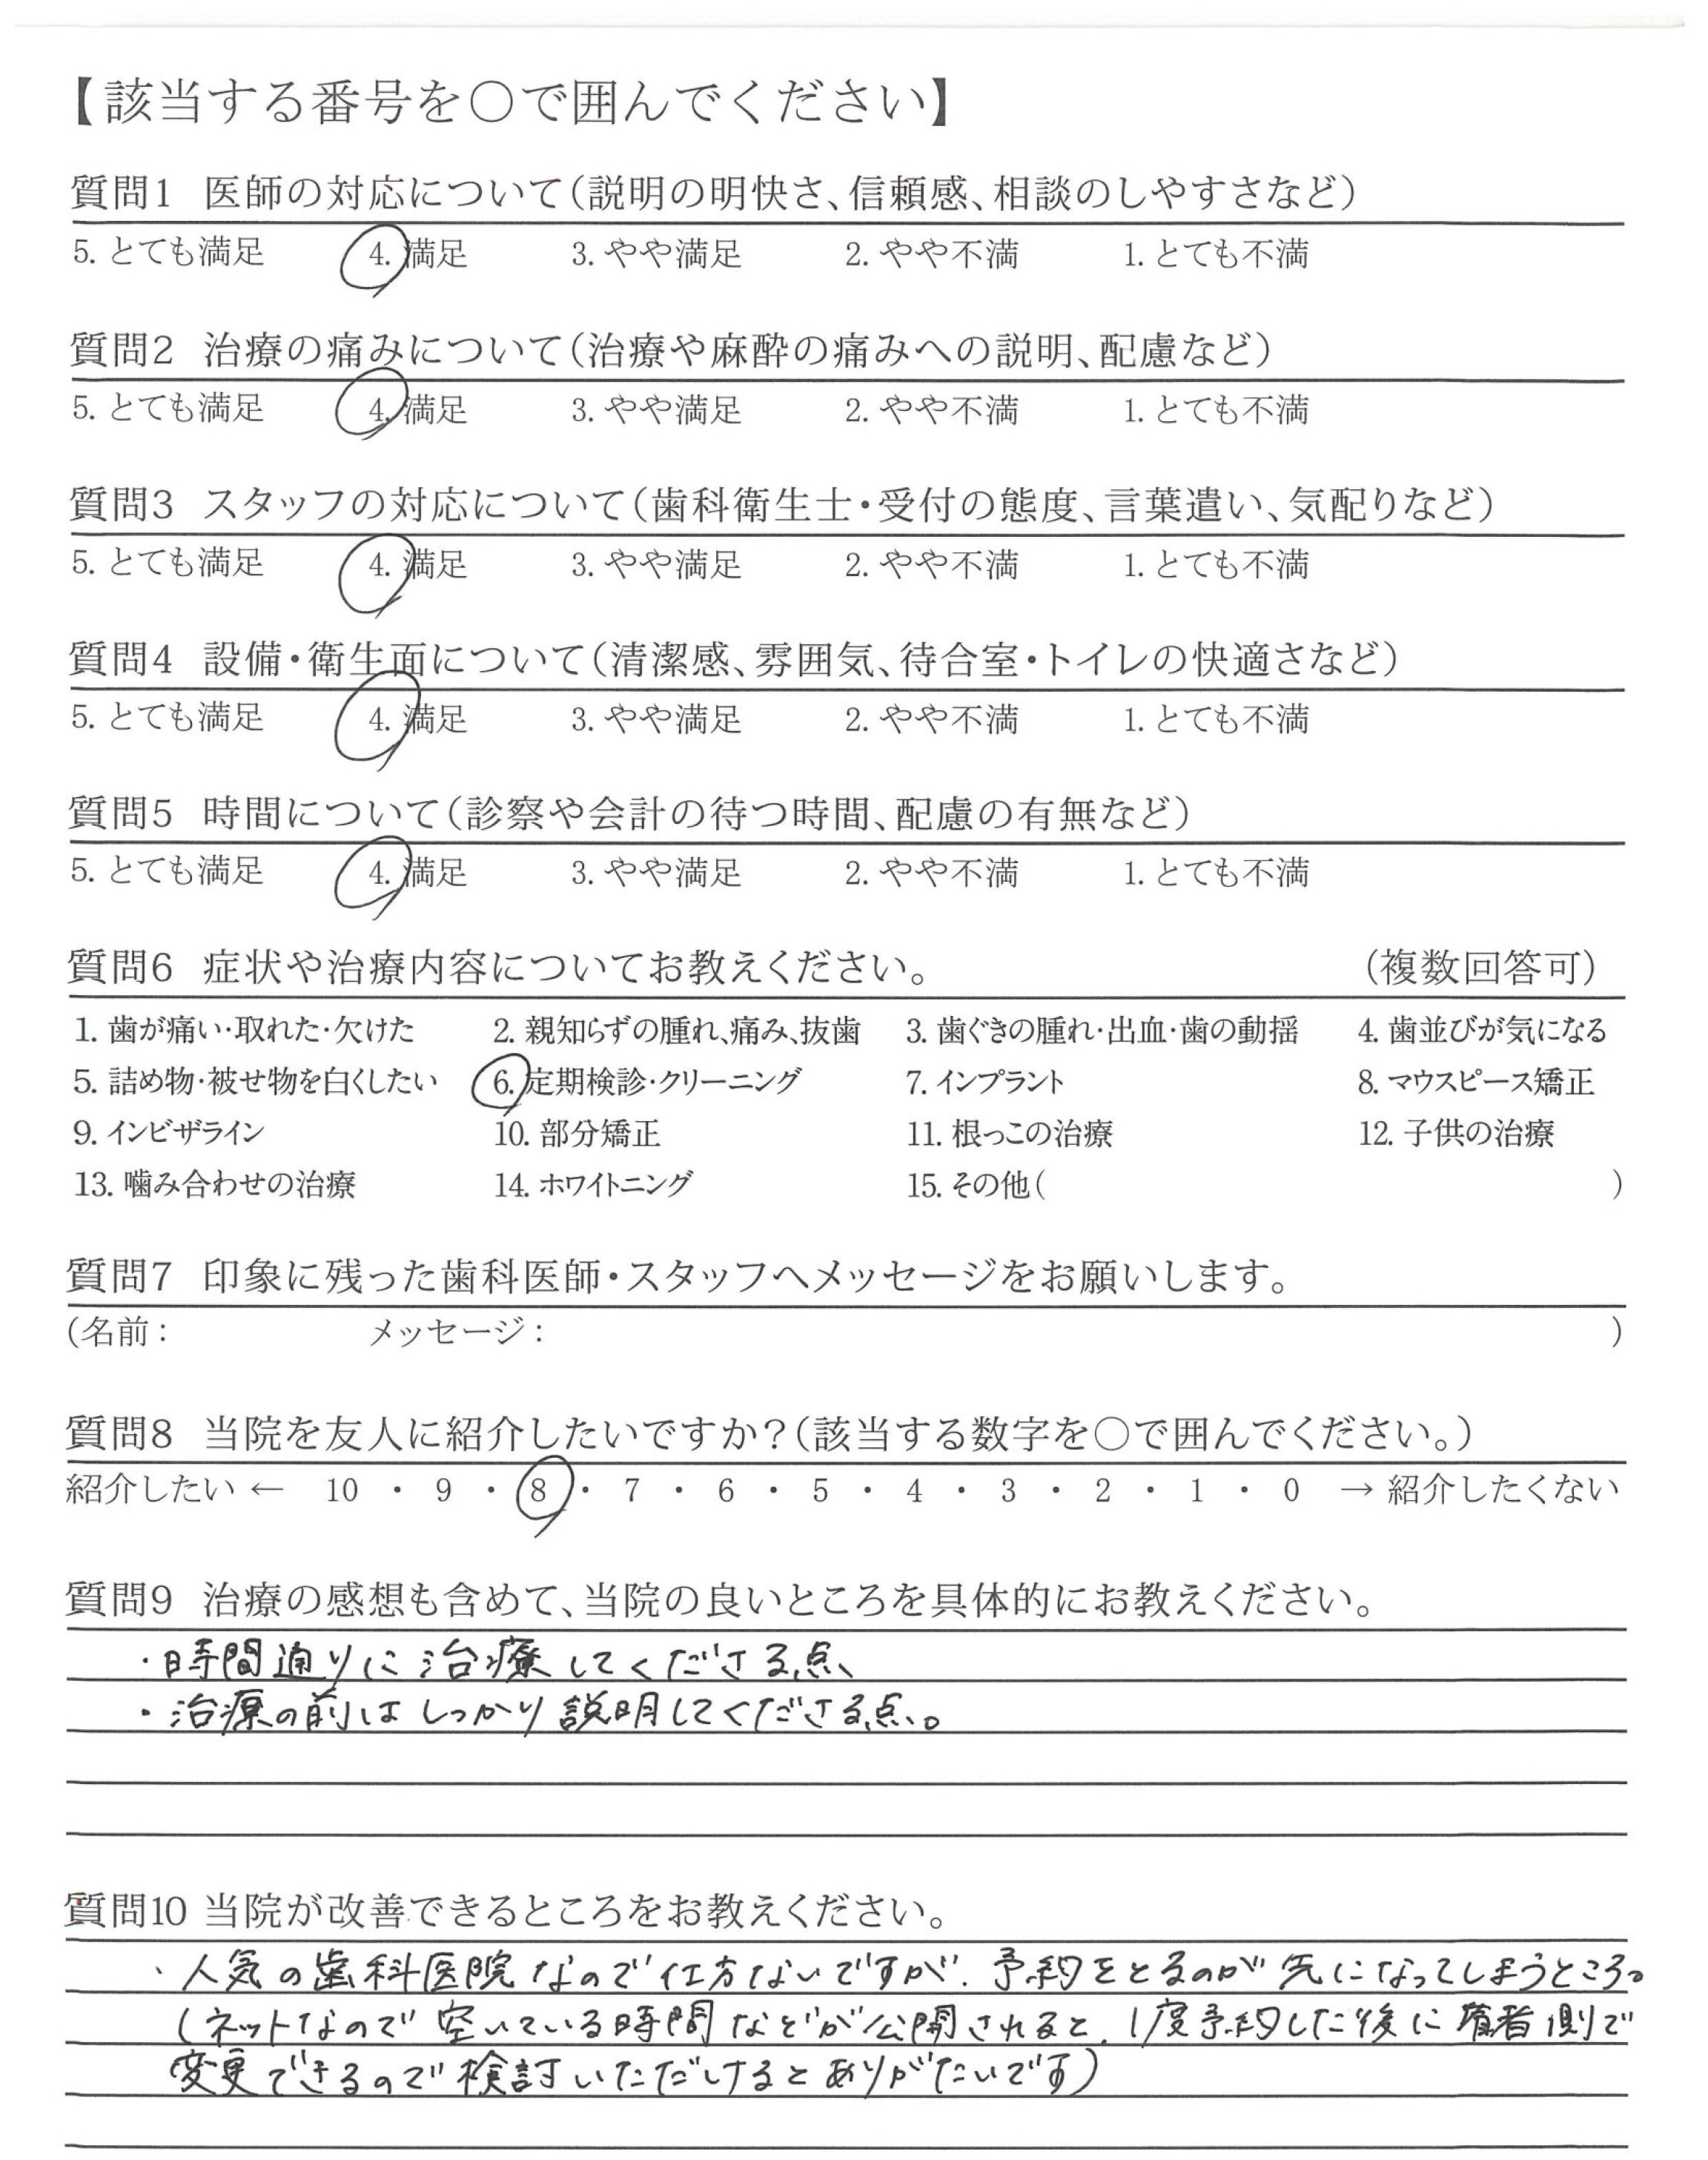 【該当する番号を○で囲んでください】
質問1 医師の対応について(説明の明快さ、信頼感、相談のしやすさなど)
5. とても満足 4. 満足 3. やや満足 2. やや不満 1. とても不満
質問2 治療の痛みについて(治療や麻酔の痛みへの説明、配慮など)
5. とても満足 4. 満足 3. やや満足 2. やや不満 1. とても不満
質問3 スタッフの対応について(歯科衛生士・受付の態度、言葉遣い、気配りなど)
5. とても満足 4. 満足 3. やや満足 2. やや不満 1. とても不満
質問4 設備・衛生面について(清潔感、雰囲気、待合室・トイレの快適さなど)
5. とても満足 4. 満足 3. やや満足 2. やや不満 1. とても不満
質問5 時間について(診察や会計の待つ時間、配慮の有無など)
5. とても満足 4. 満足 3. やや満足 2. やや不満 1. とても不満
質問6 症状や治療内容についてお教えください。 (複数回答可)
1. 歯が痛い・取れた・欠けた 2. 親知らずの腫れ、痛み、抜歯 3. 歯ぐきの腫れ・出血・歯の動揺 4. 歯並びが気になる
5. 詰め物・被せ物を白くしたい 6. 定期検診・クリーニング 7. インプラント 8. マウスピース矯正
9. インビザライン 10. 部分矯正 11. 根っこの治療 12. 子供の治療
13. 噛み合わせの治療 14. ホワイトニング 15. その他( )
質問7 印象に残った歯科医師・スタッフへメッセージをお願いします。
(名前: メッセージ: )
質問8 当院を友人に紹介したいですか?(該当する数字を○で囲んでください。)
紹介したい ← 10 ・ 9 ・ 8 ・ 7 ・ 6 ・ 5 ・ 4 ・ 3 ・ 2 ・ 1 ・ 0 → 紹介したくない
質問9 治療の感想も含めて、当院の良いところを具体的にお教えください。
・時間通りに治療してくださる点、
・治療の前はしっかり説明してくださる点、。
質問10 当院が改善できるところをお教えください。
・人気の歯科医院なので仕方ないですが、予約をとるのが先になってしまうところ。
(ネットなので空いている時間などが公開されると、1度予約した後に患者側で
変更できるので検討いただけるとありがたいです)